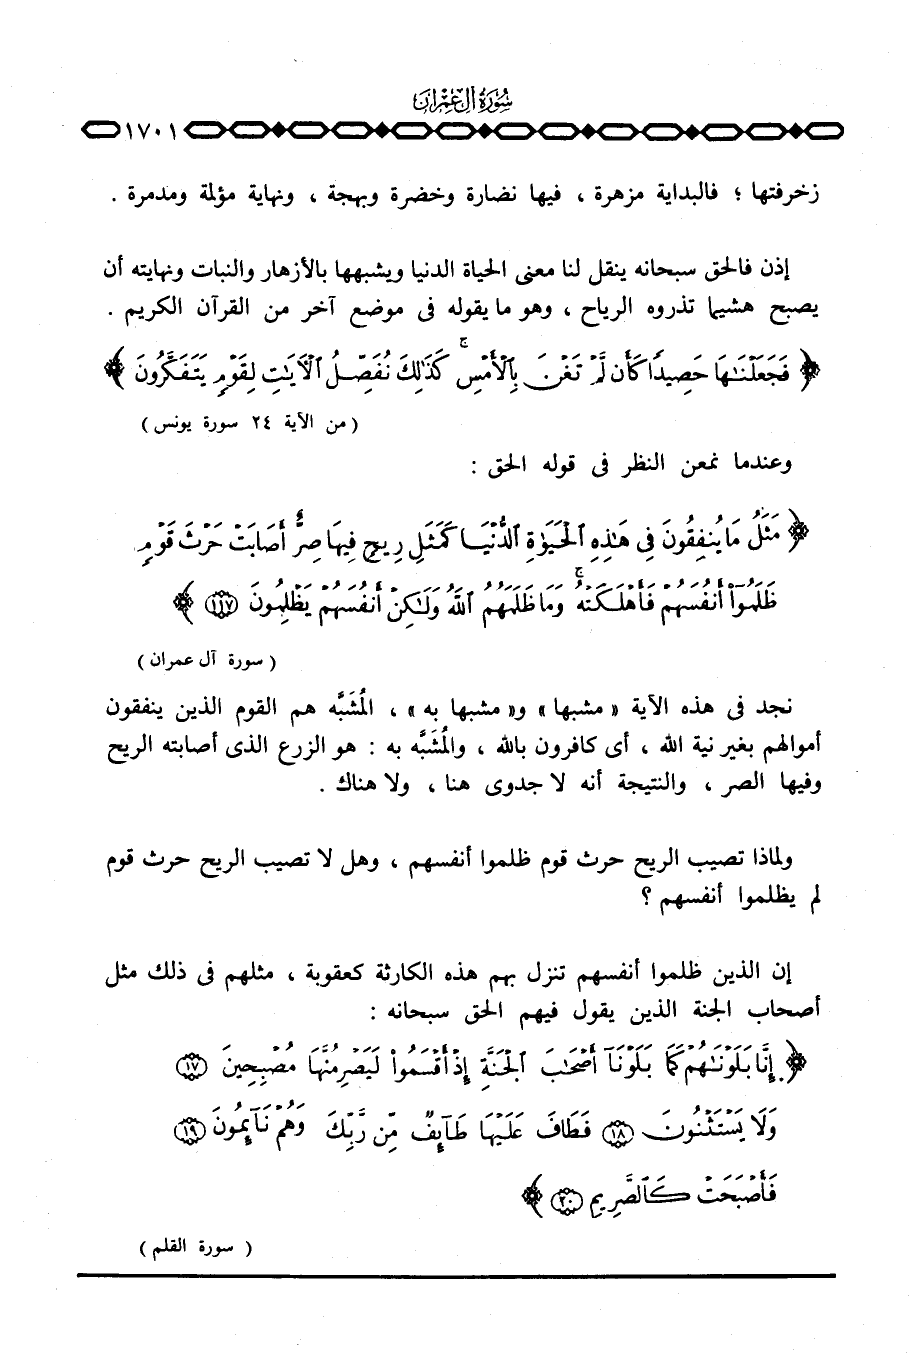 سُورَةُ آلِ عِمْرَانَ
١٧٠١
زخرفتها ؛ فالبداية مزهرة ، فيها نضارة وخضرة وبهجة ، ونهاية مؤلمة ومدمرة .
إذن فالحق سبحانه ينقل لنا معنى الحياة الدنيا ويشبهها بالأزهار والنبات ونهايته أن
يصبح هشيما تذروه الرياح ، وهو ما يقوله فى موضع آخر من القرآن الكريم .
﴿ فَجَعَلْنَٰهَا حَصِيدًا كَأَن لَّمْ تَغْنَ بِٱلْأَمْسِ ۚ كَذَٰلِكَ نُفَصِّلُ ٱلْءَايَٰتِ لِقَوْمٍ يَتَفَكَّرُونَ ﴾
( من الآية ٢٤ سورة يونس )
وعندما نمعن النظر فى قوله الحق :
﴿ مَثَلُ مَا يُنفِقُونَ فِى هَٰذِهِ ٱلْحَيَوٰةِ ٱلدُّنْيَا كَمَثَلِ رِيحٍ فِيهَا صِرٌّ أَصَابَتْ حَرْثَ قَوْمٍ
ظَلَمُوٓا۟ أَنفُسَهُمْ فَأَهْلَكَتْهُ ۚ وَمَا ظَلَمَهُمُ ٱللَّهُ وَلَٰكِنْ أَنفُسَهُمْ يَظْلِمُونَ ١١٧ ﴾
( سورة آل عمران )
نجد فى هذه الآية « مشبها » و« مشبها به » ، المُشَبَّه هم القوم الذين ينفقون
أموالهم بغير نية الله ، أى كافرون بالله ، والمُشَبَّه به : هو الزرع الذى أصابته الريح
وفيها الصر ، والنتيجة أنه لا جدوى هنا ، ولا هناك .
ولماذا تصيب الريح حرث قوم ظلموا أنفسهم ، وهل لا تصيب الريح حرث قوم
لم يظلموا أنفسهم ؟
إن الذين ظلموا أنفسهم تنزل بهم هذه الكارثة كعقوبة ، مثلهم فى ذلك مثل
أصحاب الجنة الذين يقول فيهم الحق سبحانه :
﴿ إِنَّا بَلَوْنَٰهُمْ كَمَا بَلَوْنَآ أَصْحَٰبَ ٱلْجَنَّةِ إِذْ أَقْسَمُوا۟ لَيَصْرِمُنَّهَا مُصْبِحِينَ ١٧
وَلَا يَسْتَثْنُونَ ١٨ فَطَافَ عَلَيْهَا طَآئِفٌ مِّن رَّبِّكَ وَهُمْ نَآئِمُونَ ١٩
فَأَصْبَحَتْ كَٱلصَّرِيمِ ٢٠ ﴾
( سورة القلم )